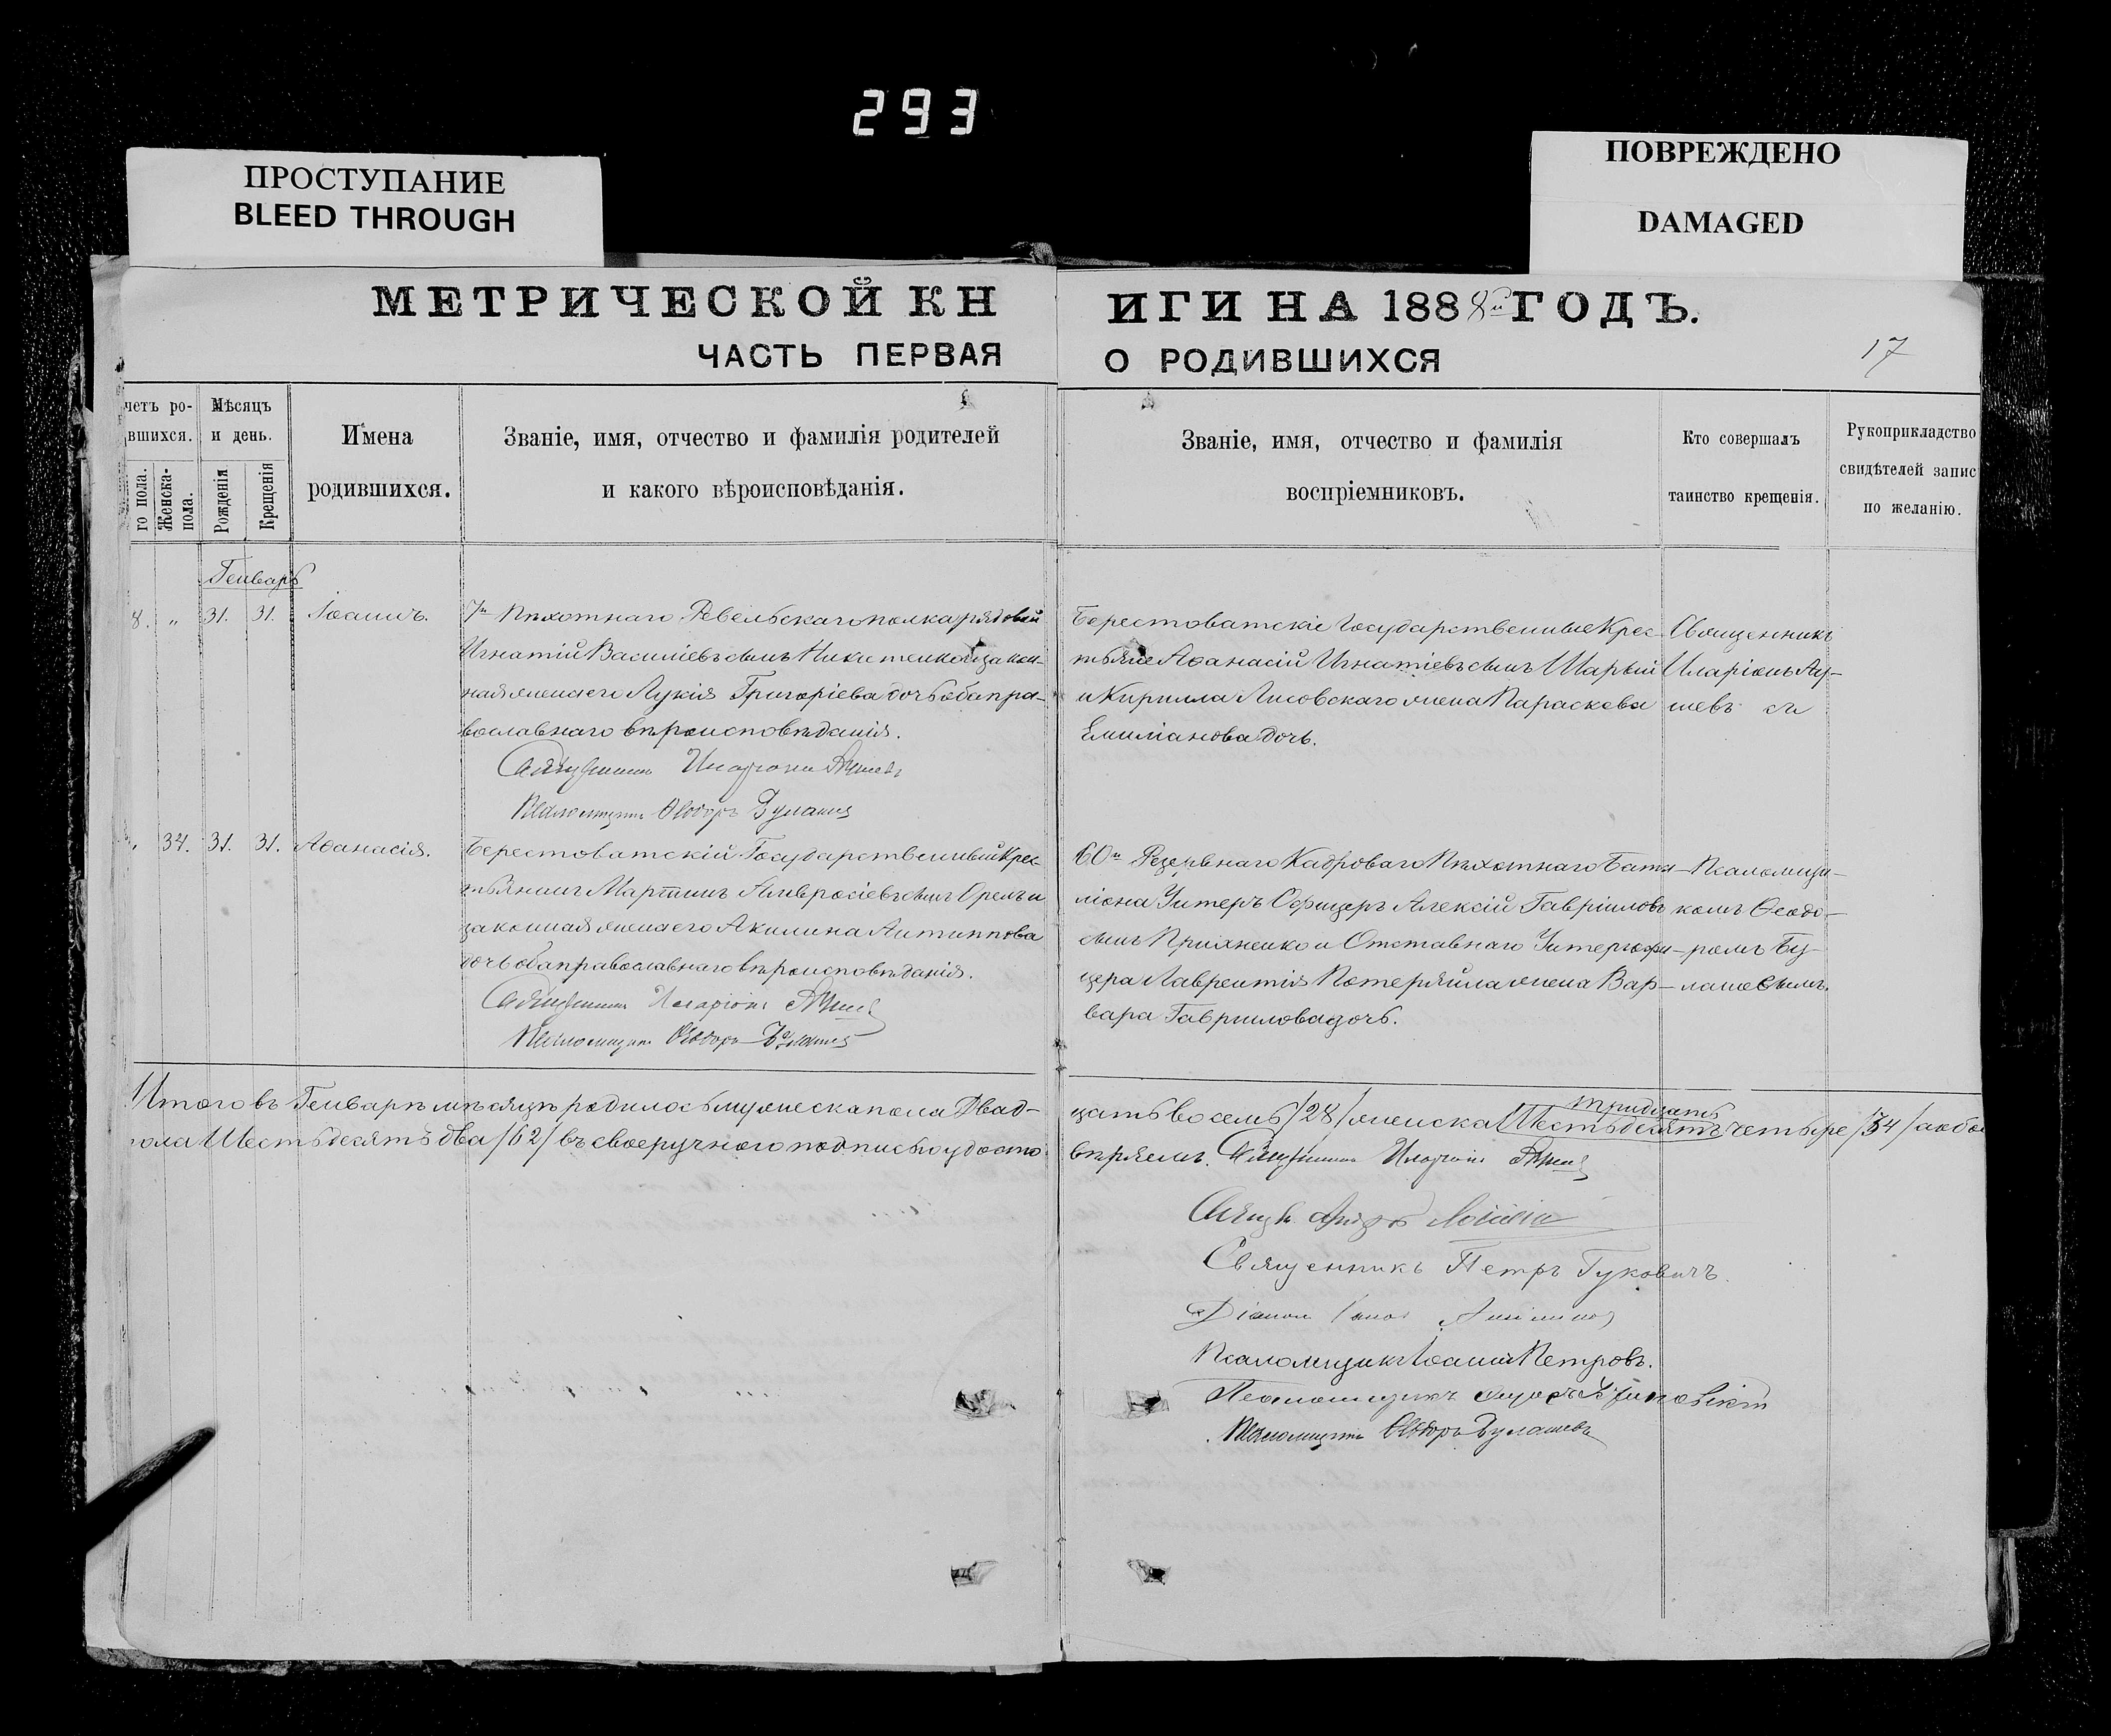 293
ПРОСТУПАНИЕ
BLEED THROUGH
ПОВРЕЖДЕНО
DAMAGED
МЕТРИЧЕСКОЙ КН
ИГИ НА 1888й ГОДЪ.
ЧАСТЬ ПЕРВАЯ
О РОДИВШИХСЯ
17
четъ ро-
вшихся.
го пола.
Женска-
пола.
Мѣсяцъ
и день.
Рожденія
Крещенія
Имена
родившихся.
Званіе, имя, отчество и фамилія родителей
и какого вѣроисповѣданія.
Званіе, имя, отчество и фамилія
воспріемниковъ.
Кто совершалъ
таинство крещенія.
Рукоприкладство
свидѣтелей запис
по желанію.
Генварь
8. „ 31. 31. Іоаннъ.
7го Пѣхотнаго Ревельскаго полка рядовый
Игнатій Василіевъ сынъ Никитенко и закон-
ная жена его Лукія Григоріева дочь оба пра-
вославнаго вѣроисповѣданія.
Священникъ Иларіонъ
Псаломщикъ Ѳеодоръ
Берестоватскіе Государственные Крес-
тьяне Аѳанасій Игнатіевъ сынъ Шарый
и Кирилла Лисовскаго жена Параскева
Емиліанова дочь.
Священникъ
Иларіонъ
34. 31. 31. Аѳанасія.
Берестоватскій Государственный Крес-
тьянинъ Мартинъ Амвросіевъ сынъ Орелъ и
законная жена его Акилина Антиппова
дочь оба православнаго вѣроисповѣданія.
Священникъ Иларіонъ
Псаломщикъ Ѳеодоръ
60го Резервнаго Кадроваго Пѣхотнаго Бата-
ліона Унтеръ Офицеръ Алексій Гавріиловъ
сынъ Прихненко и Отставнаго Унтеръ офи-
цера Лаврентія Потеряйла жена Вар-
вара Гавриилова дочь.
Псаломщи-
комъ Ѳеодо-
ромъ Бу-
Итого въ Генварѣ мѣсяцѣ родилось мужеска пола Двад-
цать восемь /28/ женска Шестьдесятъ тридцать четыре /34/ а обо
пола Шестьдесятъ два /62/ въ своеручного подписью удосто-
вѣряемъ. Священникъ Иларіонъ
Священникъ Петръ Гуковичъ.
Псаломщикъ Іоаннъ Петровъ.
Псаломщикъ
Псаломщикъ Ѳеодоръ